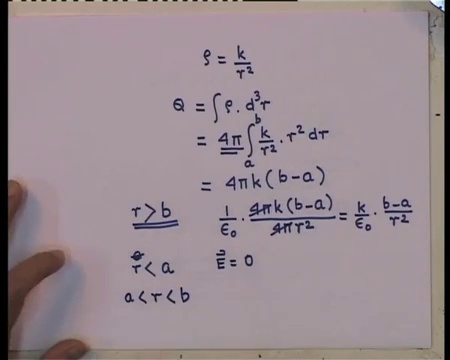 ρ = k/r²
Q = ∫ρ. d³r
= 4π ∫ₐᵇ k/r² · r² dr
= 4πk(b-a)
r > b 1/ε₀ · 4πk(b-a)/4πr² = k/ε₀ · b-a/r²
r < a E⃗ = 0
a < r < b